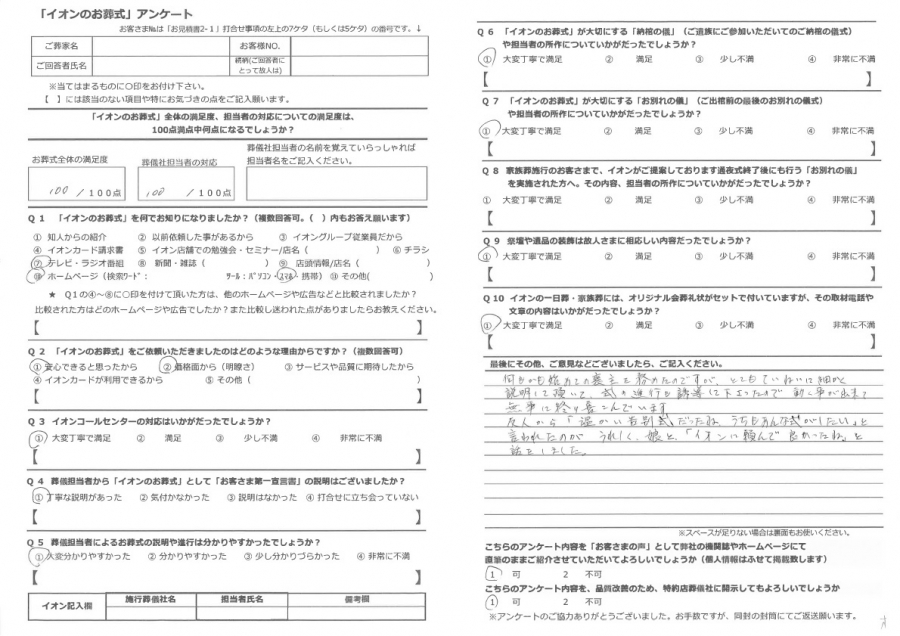 「イオンのお葬式」アンケート
お客さま№は「お見積書2-1」打合せ事項の左上の7ケタ（もしくは5ケタ）の番号です。↓
ご葬家名 お客様NO.
ご回答者氏名 続柄(ご回答者にとって故人は)
※当てはまるものに○印をお付け下さい。
【 】には該当のない項目や特にお気づきの点をご記入願います。
「イオンのお葬式」全体の満足度、担当者の対応についての満足度は、
100点満点中何点になるでしょうか？
お葬式全体の満足度 葬儀社担当者の対応 葬儀社担当者の名前を覚えていらっしゃれば
担当者名をご記入ください。
100 /100点 100 /100点
Q１ 「イオンのお葬式」を何でお知りになりましたか？（複数回答可。( ）内もお答え願います）
① 知人からの紹介 ② 以前依頼した事があるから ③ イオングループ従業員だから
④ イオンカード請求書 ⑤ イオン店舗での勉強会・セミナー/店名（ ） ⑥ チラシ
⑦ テレビ・ラジオ番組 ⑧ 新聞・雑誌（ ） ⑨ 店頭情報/店名( )
⑩ ホームページ（検索ワード： ﾂｰﾙ：ﾊﾟｿｺﾝ・ｽﾏﾎ・携帯） ⑪ その他( )
★ Q１の④～⑧に○印を付けて頂いた方は、他のホームページや広告などと比較されましたか？
比較された方はどのホームページや広告でしたか？また比較し迷われた点がありましたらお教えください。
【 】
Q２ 「イオンのお葬式」をご依頼いただきましたのはどのような理由からですか？（複数回答可）
① 安心できると思ったから ② 価格面から（明瞭さ） ③ サービスや品質に期待したから
④ イオンカードが利用できるから ⑤ その他（ ）
【 】
Q３ イオンコールセンターの対応はいかがだったでしょうか？
① 大変丁寧で満足 ② 満足 ③ 少し不満 ④ 非常に不満
【 】
Q４ 葬儀担当者から「イオンのお葬式」として「お客さま第一宣言書」の説明はございましたか？
① 丁寧な説明があった ② 気付かなかった ③ 説明はなかった ④ 打合せに立ち会っていない
【 】
Q５ 葬儀担当者によるお葬式の説明や進行は分かりやすかったでしょうか？
① 大変分かりやすかった ② 分かりやすかった ③ 少し分かりづらかった ④ 非常に不満
【 】
イオン記入欄 施行葬儀社名 担当者氏名 備考欄
Q６ 「イオンのお葬式」が大切にする「納棺の儀」（ご遺族にご参加いただいてのご納棺の儀式）
や担当者の所作についていかがだったでしょうか？
① 大変丁寧で満足 ② 満足 ③ 少し不満 ④ 非常に不満
【 】
Q７ 「イオンのお葬式」が大切にする「お別れの儀」（ご出棺前の最後のお別れの儀式）
や担当者の所作についていかがだったでしょうか？
① 大変丁寧で満足 ② 満足 ③ 少し不満 ④ 非常に不満
【 】
Q８ 家族葬施行のお客さまで、イオンがご提案しております通夜式終了後にも行う「お別れの儀」
を実施された方へ。その内容、担当者の所作についていかがだったでしょうか？
① 大変丁寧で満足 ② 満足 ③ 少し不満 ④ 非常に不満
【 】
Q９ 祭壇や遺品の装飾は故人さまに相応しい内容だったでしょうか？
① 大変丁寧で満足 ② 満足 ③ 少し不満 ④ 非常に不満
【 】
Q10 イオンの一日葬・家族葬には、オリジナル会葬礼状がセットで付いていますが、その取材電話や
文章の内容はいかがだったでしょうか？
① 大変丁寧で満足 ② 満足 ③ 少し不満 ④ 非常に不満
【 】
最後にその他、ご意見などございましたら、ご記入ください。
何もかも始めての喪主を務めたのですが、とてもていねいに細かく
説明して頂いて、式の進行も誘導して下さったので 動く事が出来て
無事に終り喜こんでいます
友人から「温かい告別式だったね、うちもあんな式がしたい」と
言われたのが うれしく、娘と、「イオンに頼んで良かったね」と
話をしました。
※スペースが足りない場合は裏面もお使いください。
こちらのアンケート内容を「お客さまの声」として弊社の機関誌やホームページにて
直筆のままご紹介させていただいてよろしいでしょうか（個人情報はふせて掲載致します）
1 可 2 不可
こちらのアンケート内容を、品質改善のため、特約店葬儀社に開示してもよろしいでしょうか
1 可 2 不可
※アンケートのご協力ありがとうございました。お手数ですが、同封の封筒にてご返送願います。